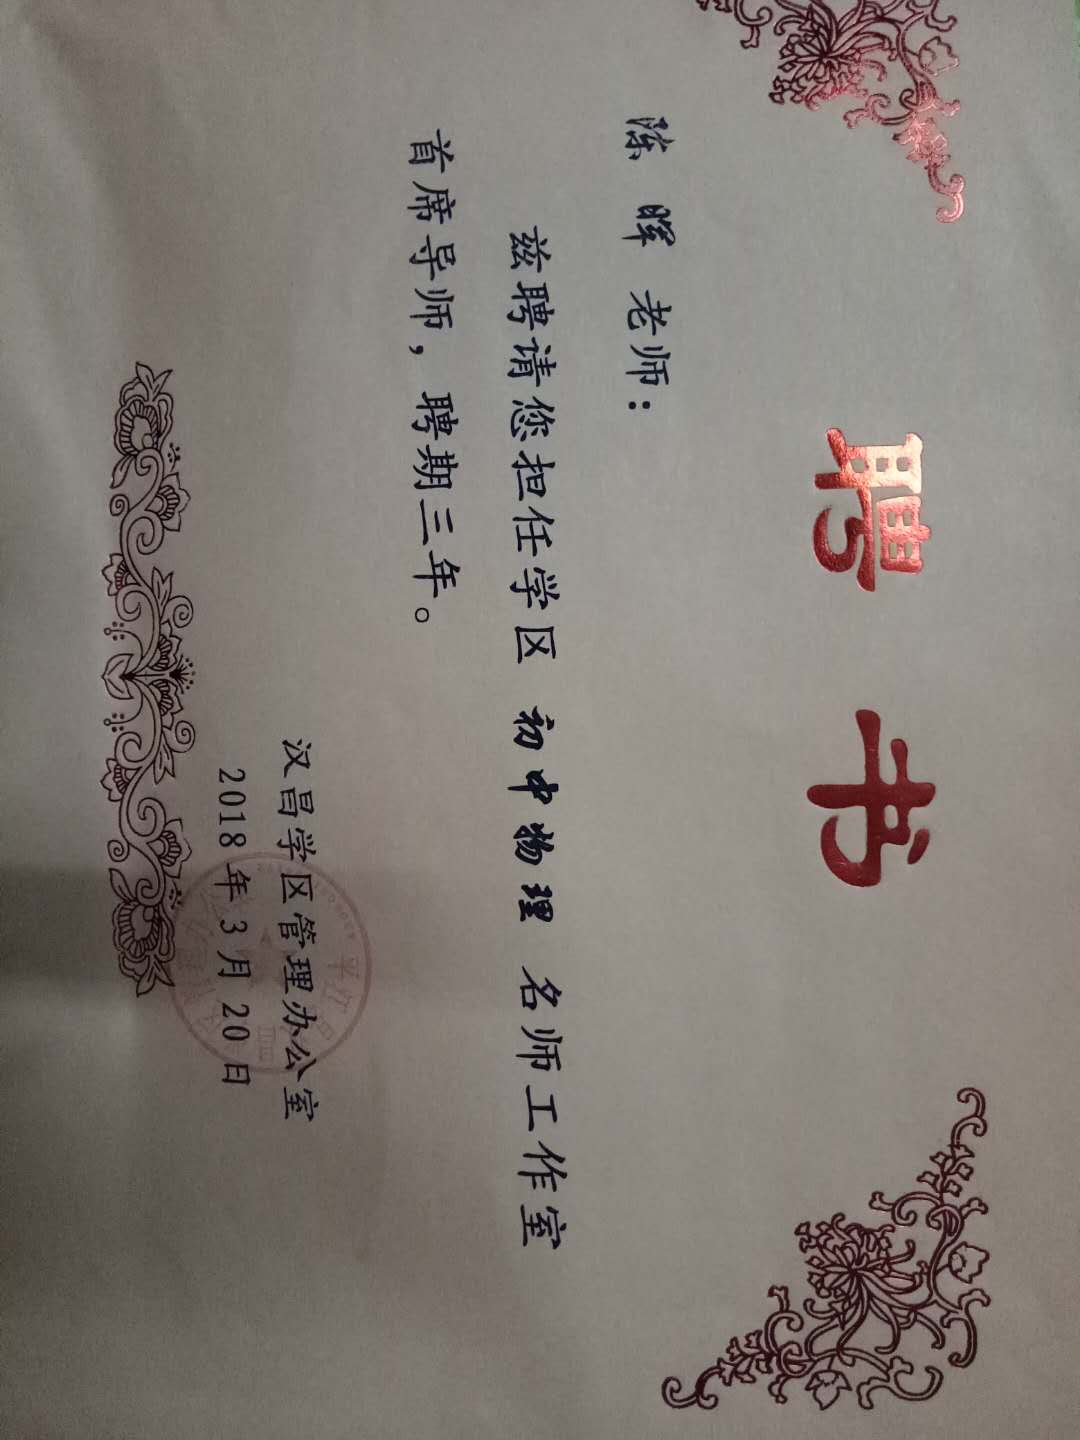 聘书
陈晖 老师：
兹聘请您担任学区 初中物理 名师工作室
首席导师，聘期三年。
汉昌学区管理办公室
2018年3月20日